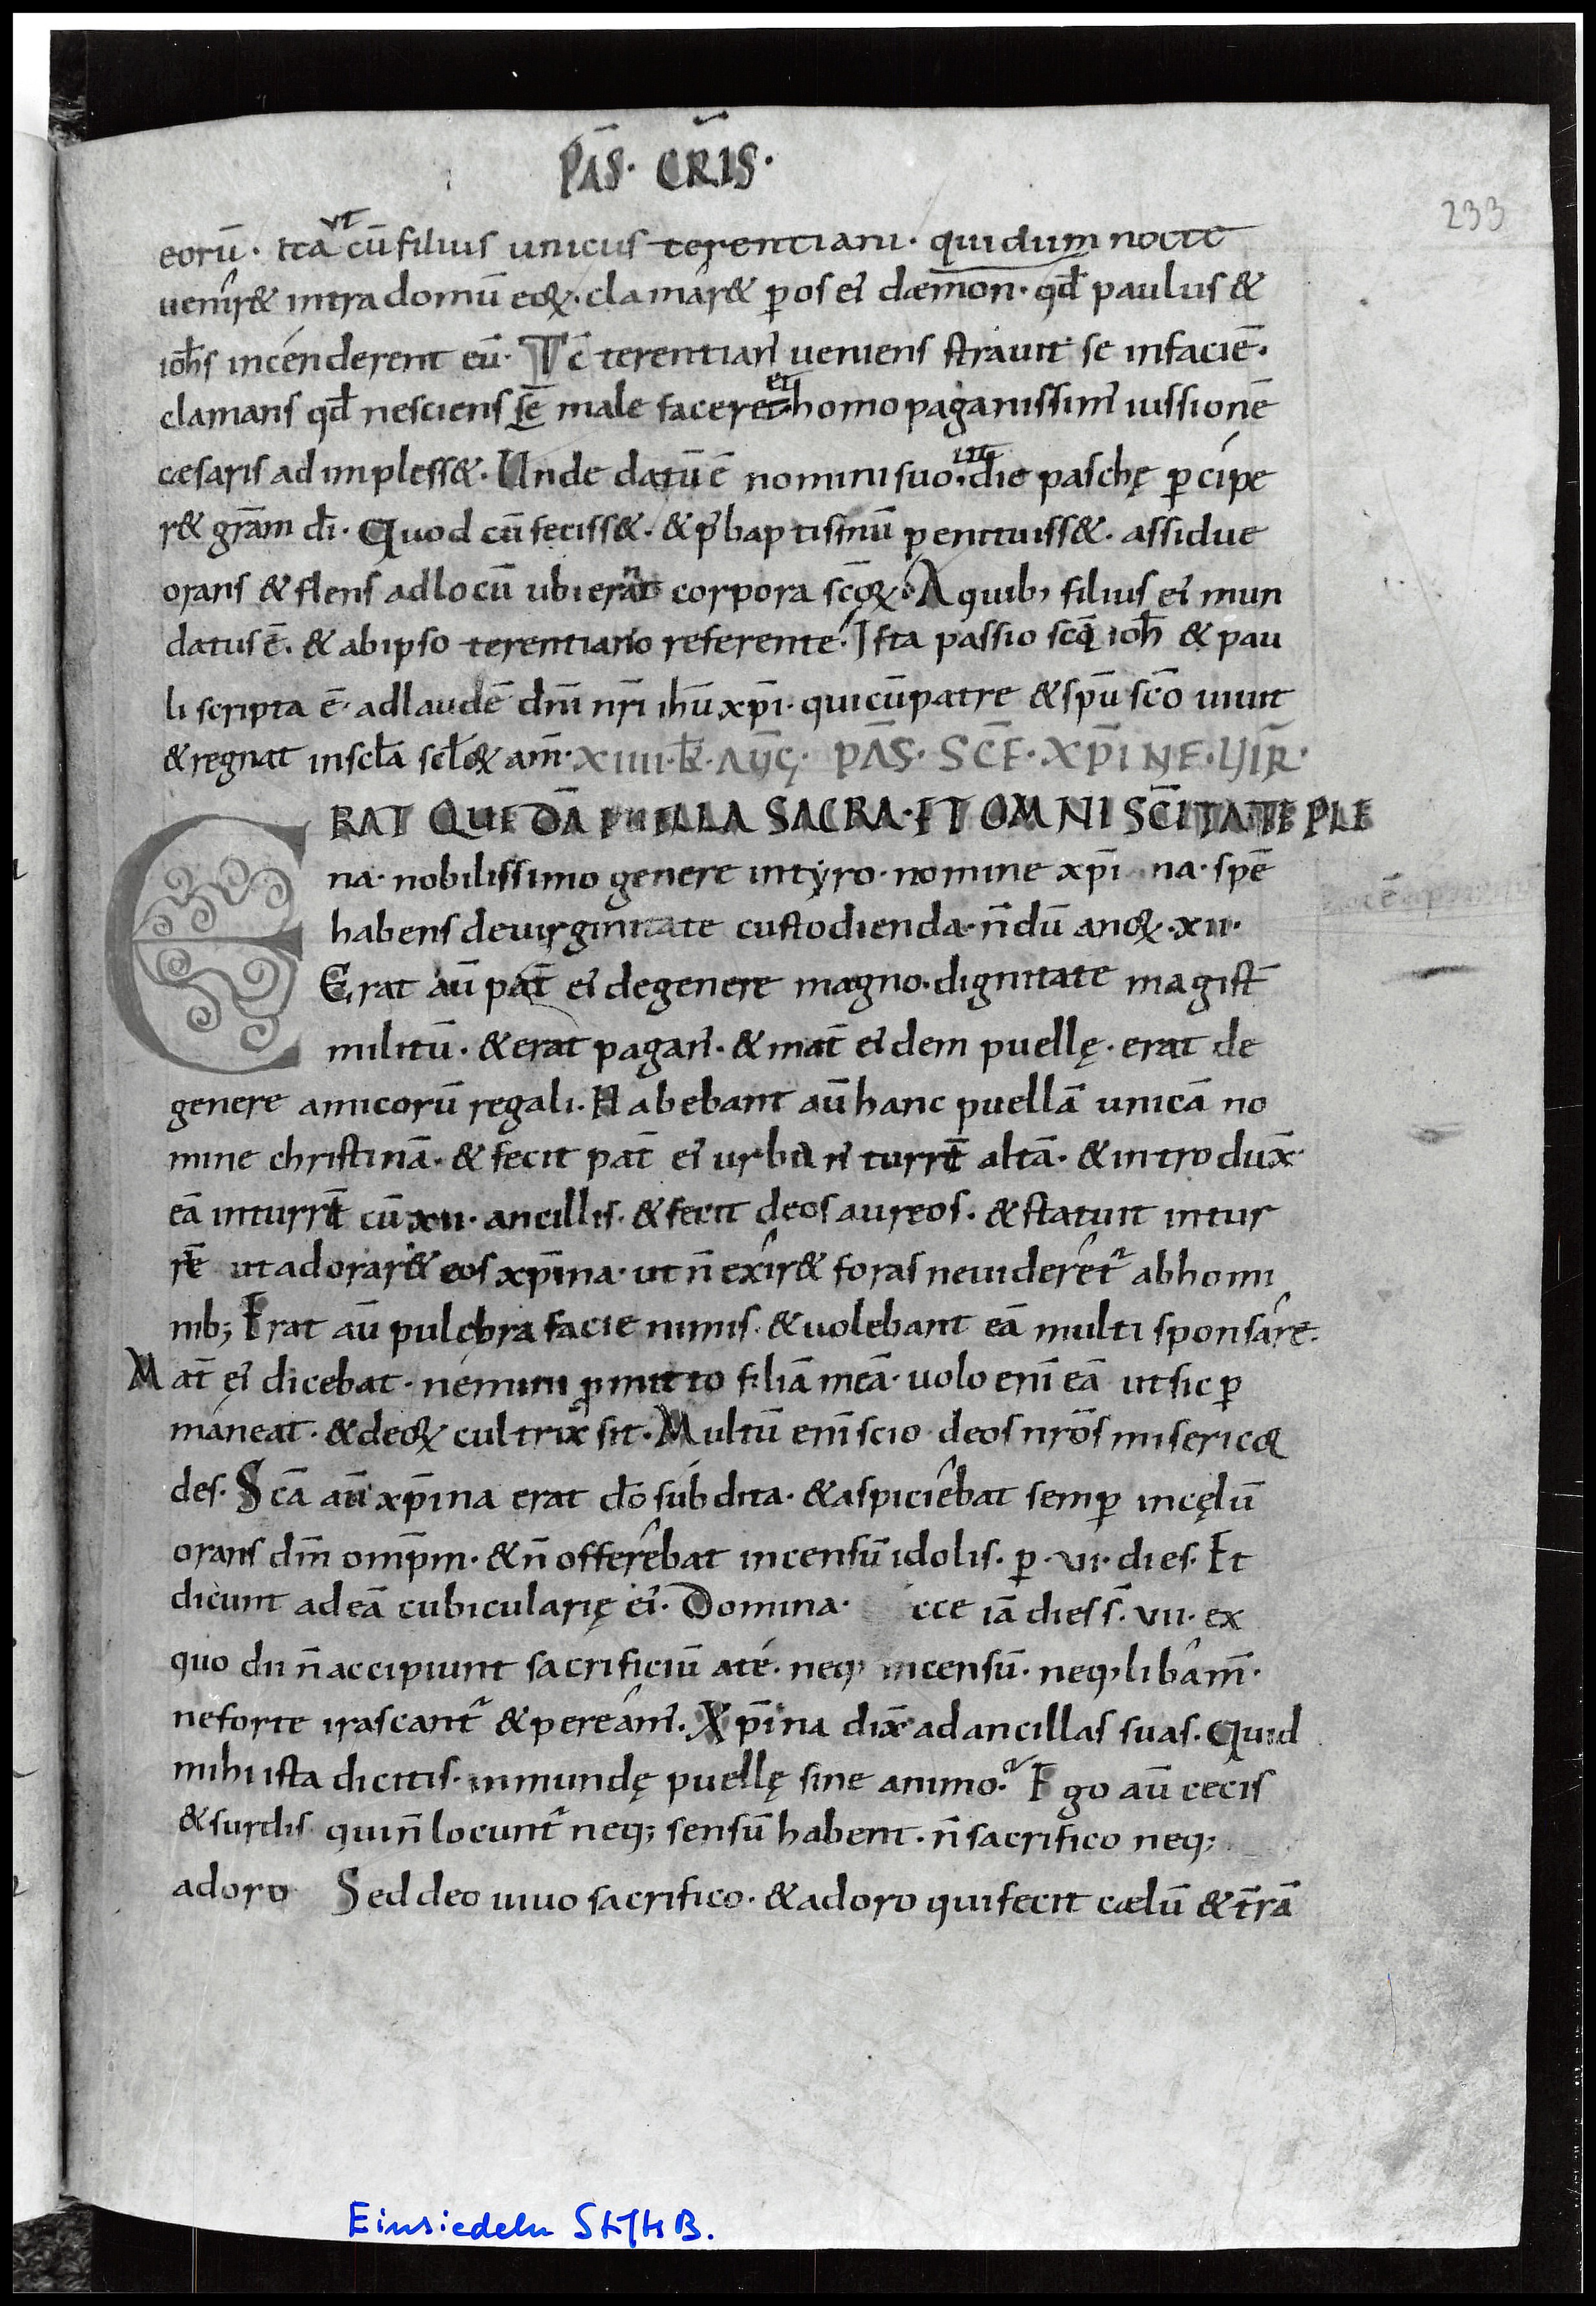 PAS̄. CR̄IS.
233
eorū. Ita ut cū filius unicus terentiani. qui dum nocte
uenir& intra domū eoꝝ. clamar& p os ei᾽ dæmon. qđ paulus &
ioħs incenderent eū. Tc̄ terentian᾽ ueniens strauit se in faciē.
clamans qđ nesciens sē male facere et homo paganissim᾽ iussionē
cæsaris adimpless&. Unde datū ē nomini suo. in die paschę ꝑcipe
r& grām dī. Quod cū feciss&. & p᾽ baptismū penituiss&. assidue
orans & flens ad locū ubi erant corpora scōꝝ. A quib; filius ei᾽ mun
datus ē. & ab ipso terentiano referente. Ista passio scōꝝ ioħ & pau
li scripta ē. ad laudē dn̄i nr̄i ih̄u xp̄i. qui cū patre & spū scō uiuit
& regnat in scl̄a scl̄oꝝ am̄. XIIII. K̄. AUG. PAS̄. SCE̅. XP̄INE. UIR̄.
ERAT QUEDĀ PUELLA SACRA. ET OMNI SC̄ITATE PLE
na. nobilissimo genere in tyro. nomine xp̄i na. spē
habens de uirginitate custodienda. n̄dū anoꝝ. xii.
Erat aū pat̄ ei᾽ de genere magno. dignitate magist̄
militū. & erat pagan᾽. & mat̄ ei᾽dem puellę. erat de
genere amicorū regali. Habebant aū hanc puellā unicā no
mine christinā. & fecit pat̄ ei᾽ urban᾽ turrē altā. & introdux̄
eā in turrē cū xii. ancillis. & fecit deos aureos. & statuit in tur
rē ut adorar& eos xp̄ina. ut n̄ exir& foras ne uideret᷑ ab homi
nib; Erat aū pulchra facie nimis. & uolebant eā multi sponsare.
Mat̄ ei᾽ dicebat. nemini ꝓmitto filiā meā. uolo eni᾽ eā ut sic ꝑ
maneat. & deoꝝ cultrix sit. Multū eni᾽ scio deos nrōs misericoꝛ
des. Scā aū xp̄ina erat dō subdita. & aspiciebat semꝑ in cęlū
orans dm̄ omp̄m. & n̄ offerebat incensū idolis. ꝑ. vi. dies. Et
dicunt ad eā cubicularię ei᾽. Domina. cce iā dies s̄. vii. ex
quo dii n̄ accipiunt sacrificiū a te. neq; incensū. neq; libam̄.
ne forte irascant᷑ & peream᾽. Xp̄ina dix̄ ad ancillas suas. Quid
mihi ista dicitis. inmundę puellę sine animo? Ego aū cecis
& surdis qui n̄ locunt᷑ neq; sensū habent. n̄ sacrifico neq;
adoro Sed deo uiuo sacrifico. & adoro qui fecit cælū & t̄rā
Einsiedeln StiftsB.